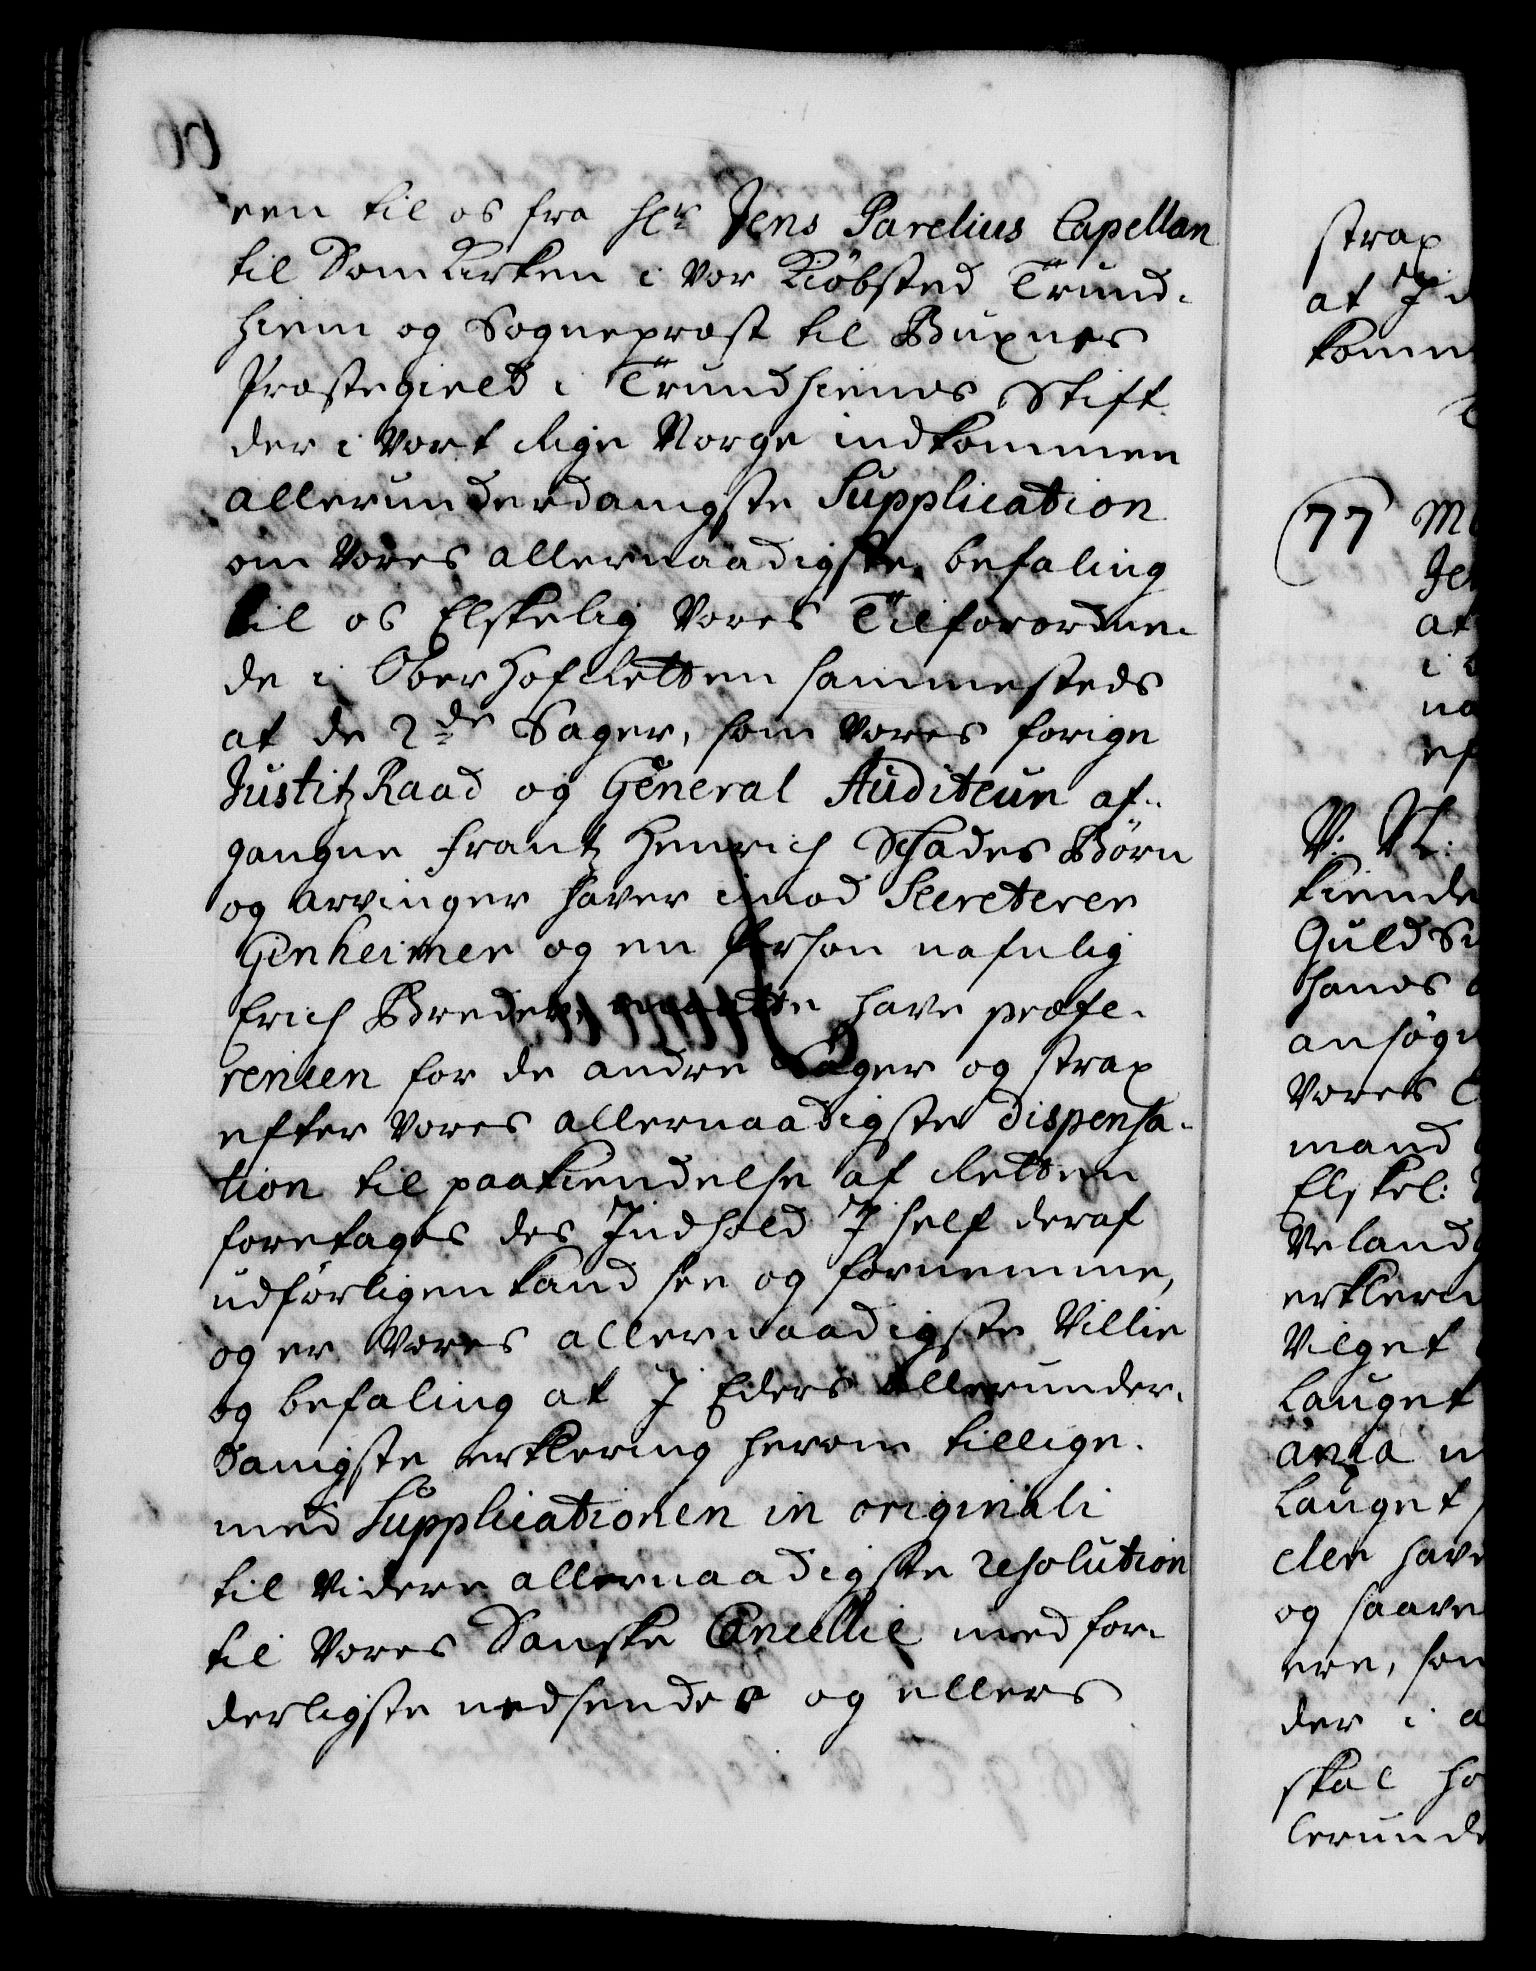 een til os fra Hr Jens Parelius Capellan
til Dom Kirken i vor Kiöbsted Trund-
hiem og Sognepræst til Buxnes
Præstegield i Trundhiems Stift
der i Vort Rige Norge indkommen
allerunderdanigste Supplication
om Vores allernaadigste befaling
til os Elskelig Vores Tilforordne-
de i OberHofRetten sammesteds
at de 2de Sager, som Vores forige
JustitzRaad og General Auditeur af-
gangne Frantz Henrich Schades Börn
og arvinger haver imod Secreterer
Genheimer og en Person nafnlig
Erich Breder, maatte have præfe-
rencen for de andre Sager og strax
efter Vores allernaadigste dispensa-
tion til paakiendelse af Retten
foretages des Indhold I self deraf
udförligen kand see og fornemme,
og er Vores allernaadigste Villie
og befaling at I Eders allerunder-
danigste erklering herom tillige
med Supplicationen in originali
til Videre allernaadigste resolution
til Vores Danske Cancellie med for-
derligste nedsender og ellers
strax
at I
komm
77
V: N:
kiende
Guld
hands
ansöge
Vores
mand
Elskel:
Veland
erklere
Vilget
Lauget
Lauget
eller have
og saave
ere, som
der i
skal
lerunde